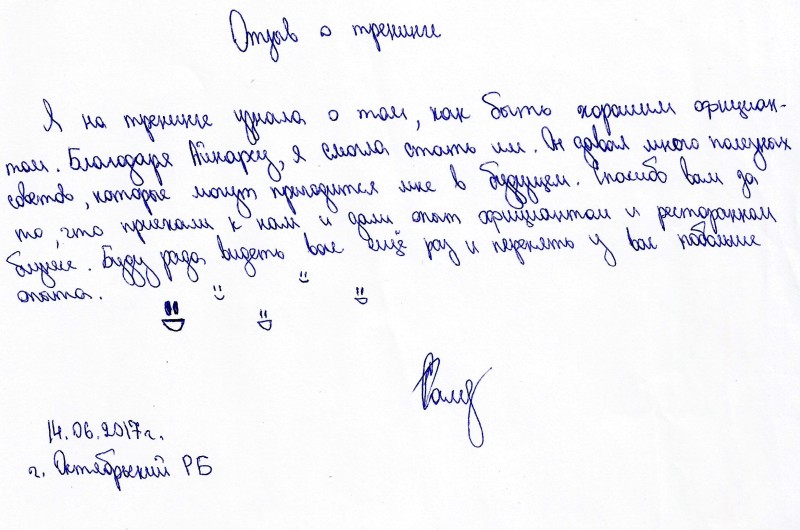 Отзыв о тренинге
Я на тренинге узнала о том, как быть хорошим официан-
том. Благодаря Айнарсу, я смогла стать им. Он давал много полезных
советов, которые могут пригодится мне в будущем. Спасибо вам за
то, что приехали к нам и дали опыт официантом и ресторанном
бизнесе. Буду рада видеть вас ещё раз и перенять у вас побольше
опыта.
14.06.2017г.
г. Октябрьский РБ